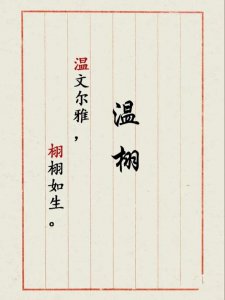 温栩
温文尔雅，
栩栩如生。